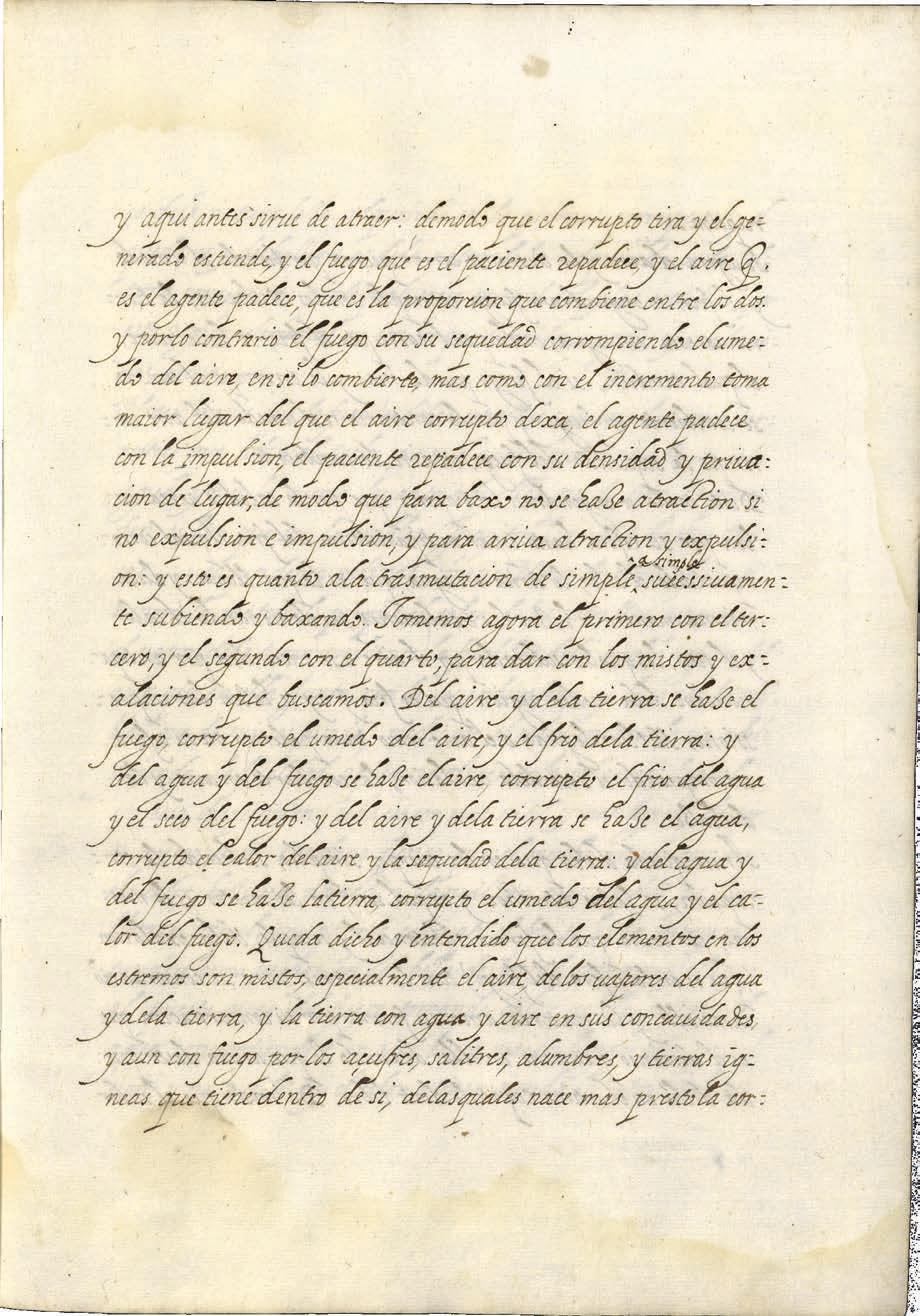 y aqui antes sirue de atraer: demodo que el corrupto tira y el ge=
nerado estiende, y el fuego que es el paciente repadece, y el aire q̃.
es el agente padece, que es la proporcion que combiene entre los dos.
y porlo contrario el fuego con su sequedad corrompiendo el ume=
do del aire, en si lo combierte, mas como con el incremento toma
maior lugar del que el aire corrupto dexa, el agente padece
con la impulsion, el paciente repadece con su densidad y priua=
cion de lugar, de modo que para baxo no se haze atraction si
no expulsion e impulsion, y para ariua atraction y expulsi=
on: y esto es quanto ala trasmutacion de simple a simple sucessiuamen=
te subiendo y baxando. Tomemos agora el primero con el ter=
cero, y el segundo con el quarto, para dar con los mistos y ex=
alaciones que buscamos. Del aire y dela tierra se haze el
fuego, corrupto el umedo del aire, y el frio dela tierra: y
del agua y del fuego se haze el aire, corrupto el frio del agua
y el seco del fuego: y del aire y dela tierra se haze el agua,
corrupto el calor del aire y la sequedad dela tierra: y del agua y
del fuego se haze latierra, corrupto el umedo del agua y el ca=
lor del fuego. Queda dicho y entendido que los elementos en los
estremos son mistos, especialmente el aire, delos uapores del agua
y dela tierra, y la tierra con agua y aire en sus concauidades,
y aun con fuego por los açufres, salitres, alumbres, y tierras ig=
neas que tiene dentro de si, delasquales nace mas presto la cor=